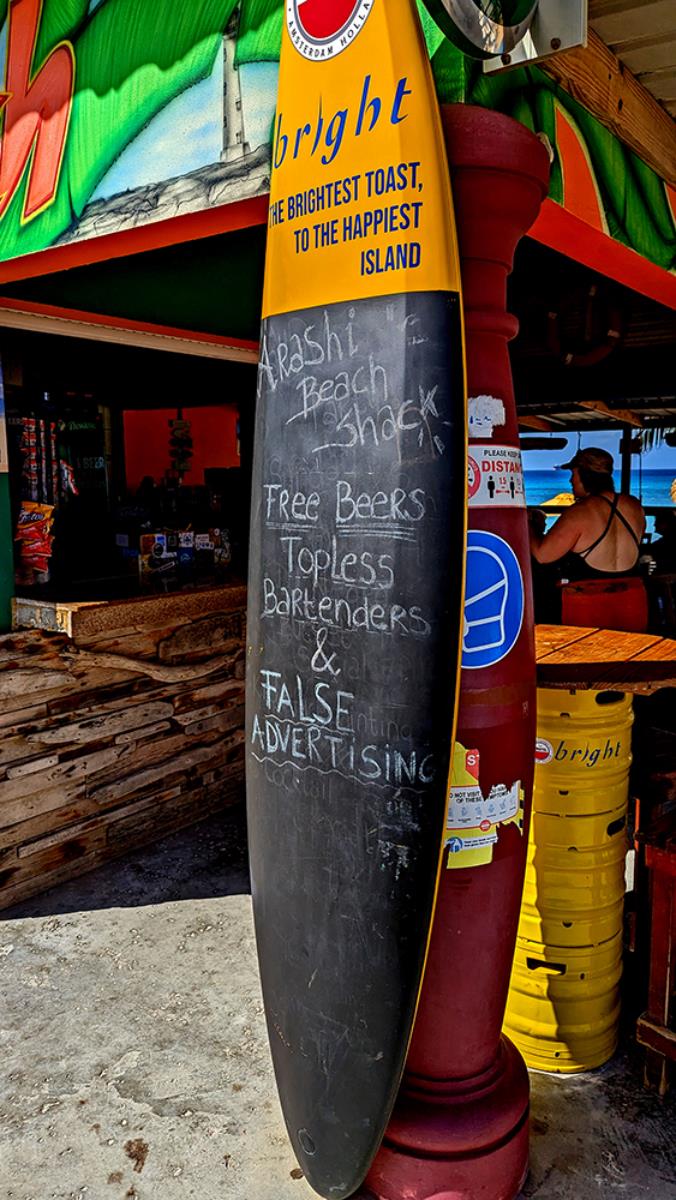 AMSTERDAM HOLLA
bright
THE BRIGHTEST TOAST,
TO THE HAPPIEST
ISLAND
Arashi
Beach
Shack
Free Beers
Topless
Bartenders
&
FALSE
ADVERTISING
PLEASE KEEP
DISTAN
1.5
bright
DO NOT VISIT
OF THESE